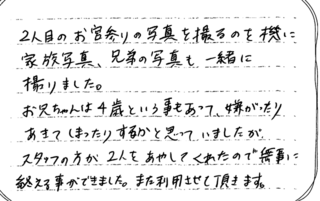 2人目のお宮参りの写真を撮るのを機に
家族写真、兄弟の写真も一緒に
撮りました。
お兄ちゃんは4歳という事もあって、嫌がったり
あきてしまったりするかと思っていましたが
スタッフの方が2人をあやしてくれたので無事に
終える事ができました。また利用させて頂きます。